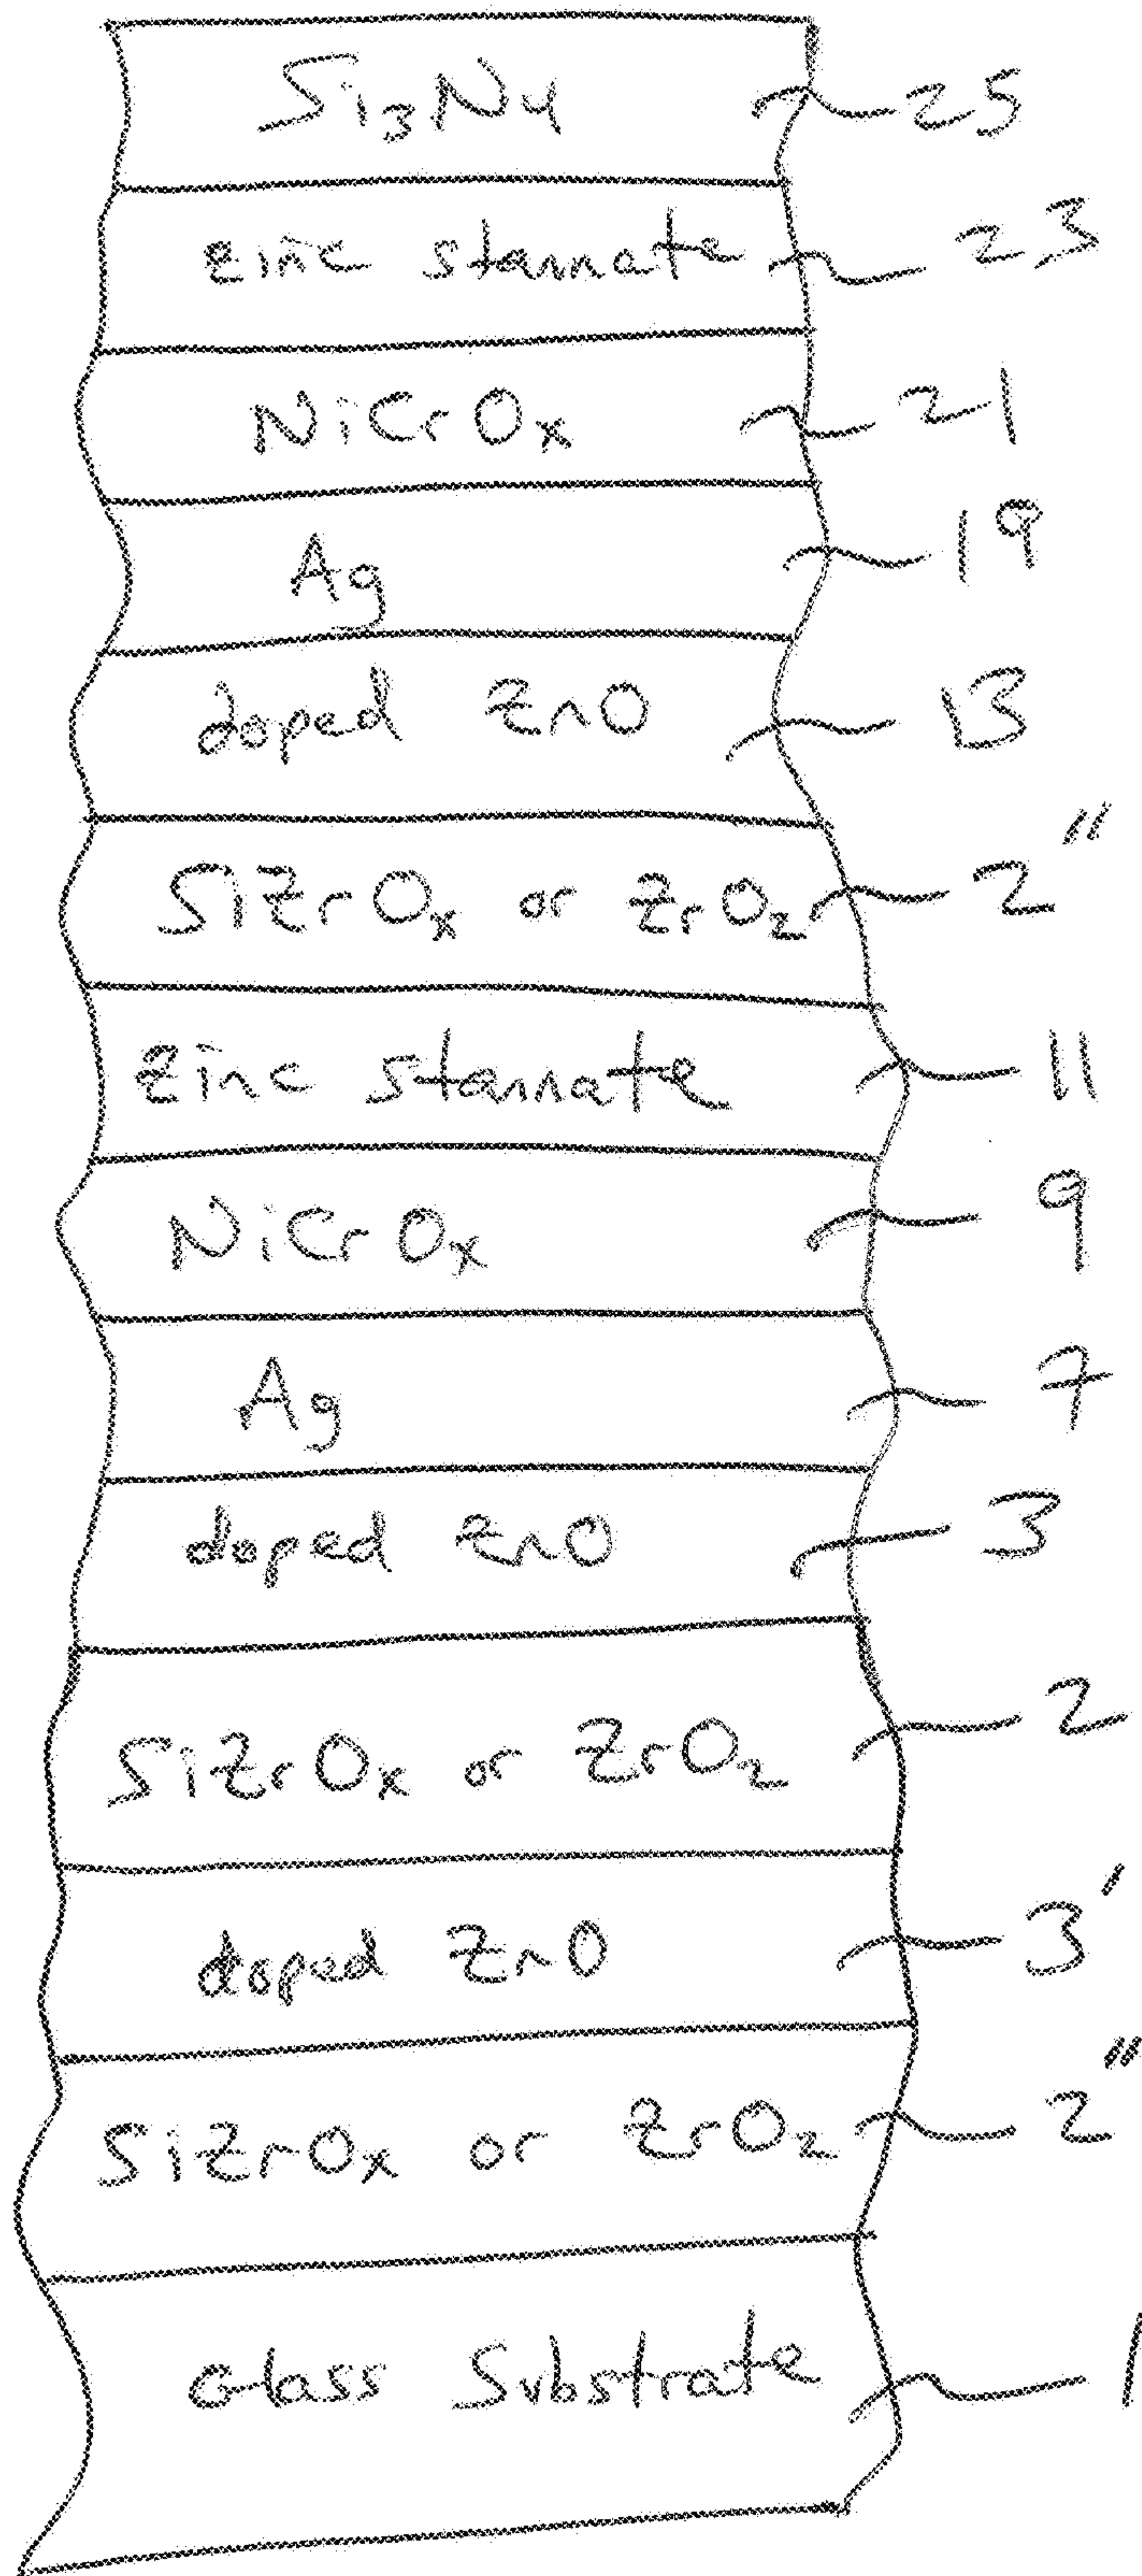 Si3N4 25
zinc stannate 23
NiCrOx 21
Ag 19
doped ZnO 13
SiZrOx or ZrO2 2"
zinc stannate 11
NiCrOx 9
Ag 7
doped ZnO 3
SiZrOx or ZrO2 2
doped ZnO 3'
SiZrOx or ZrO2 2"
Glass Substrate 1